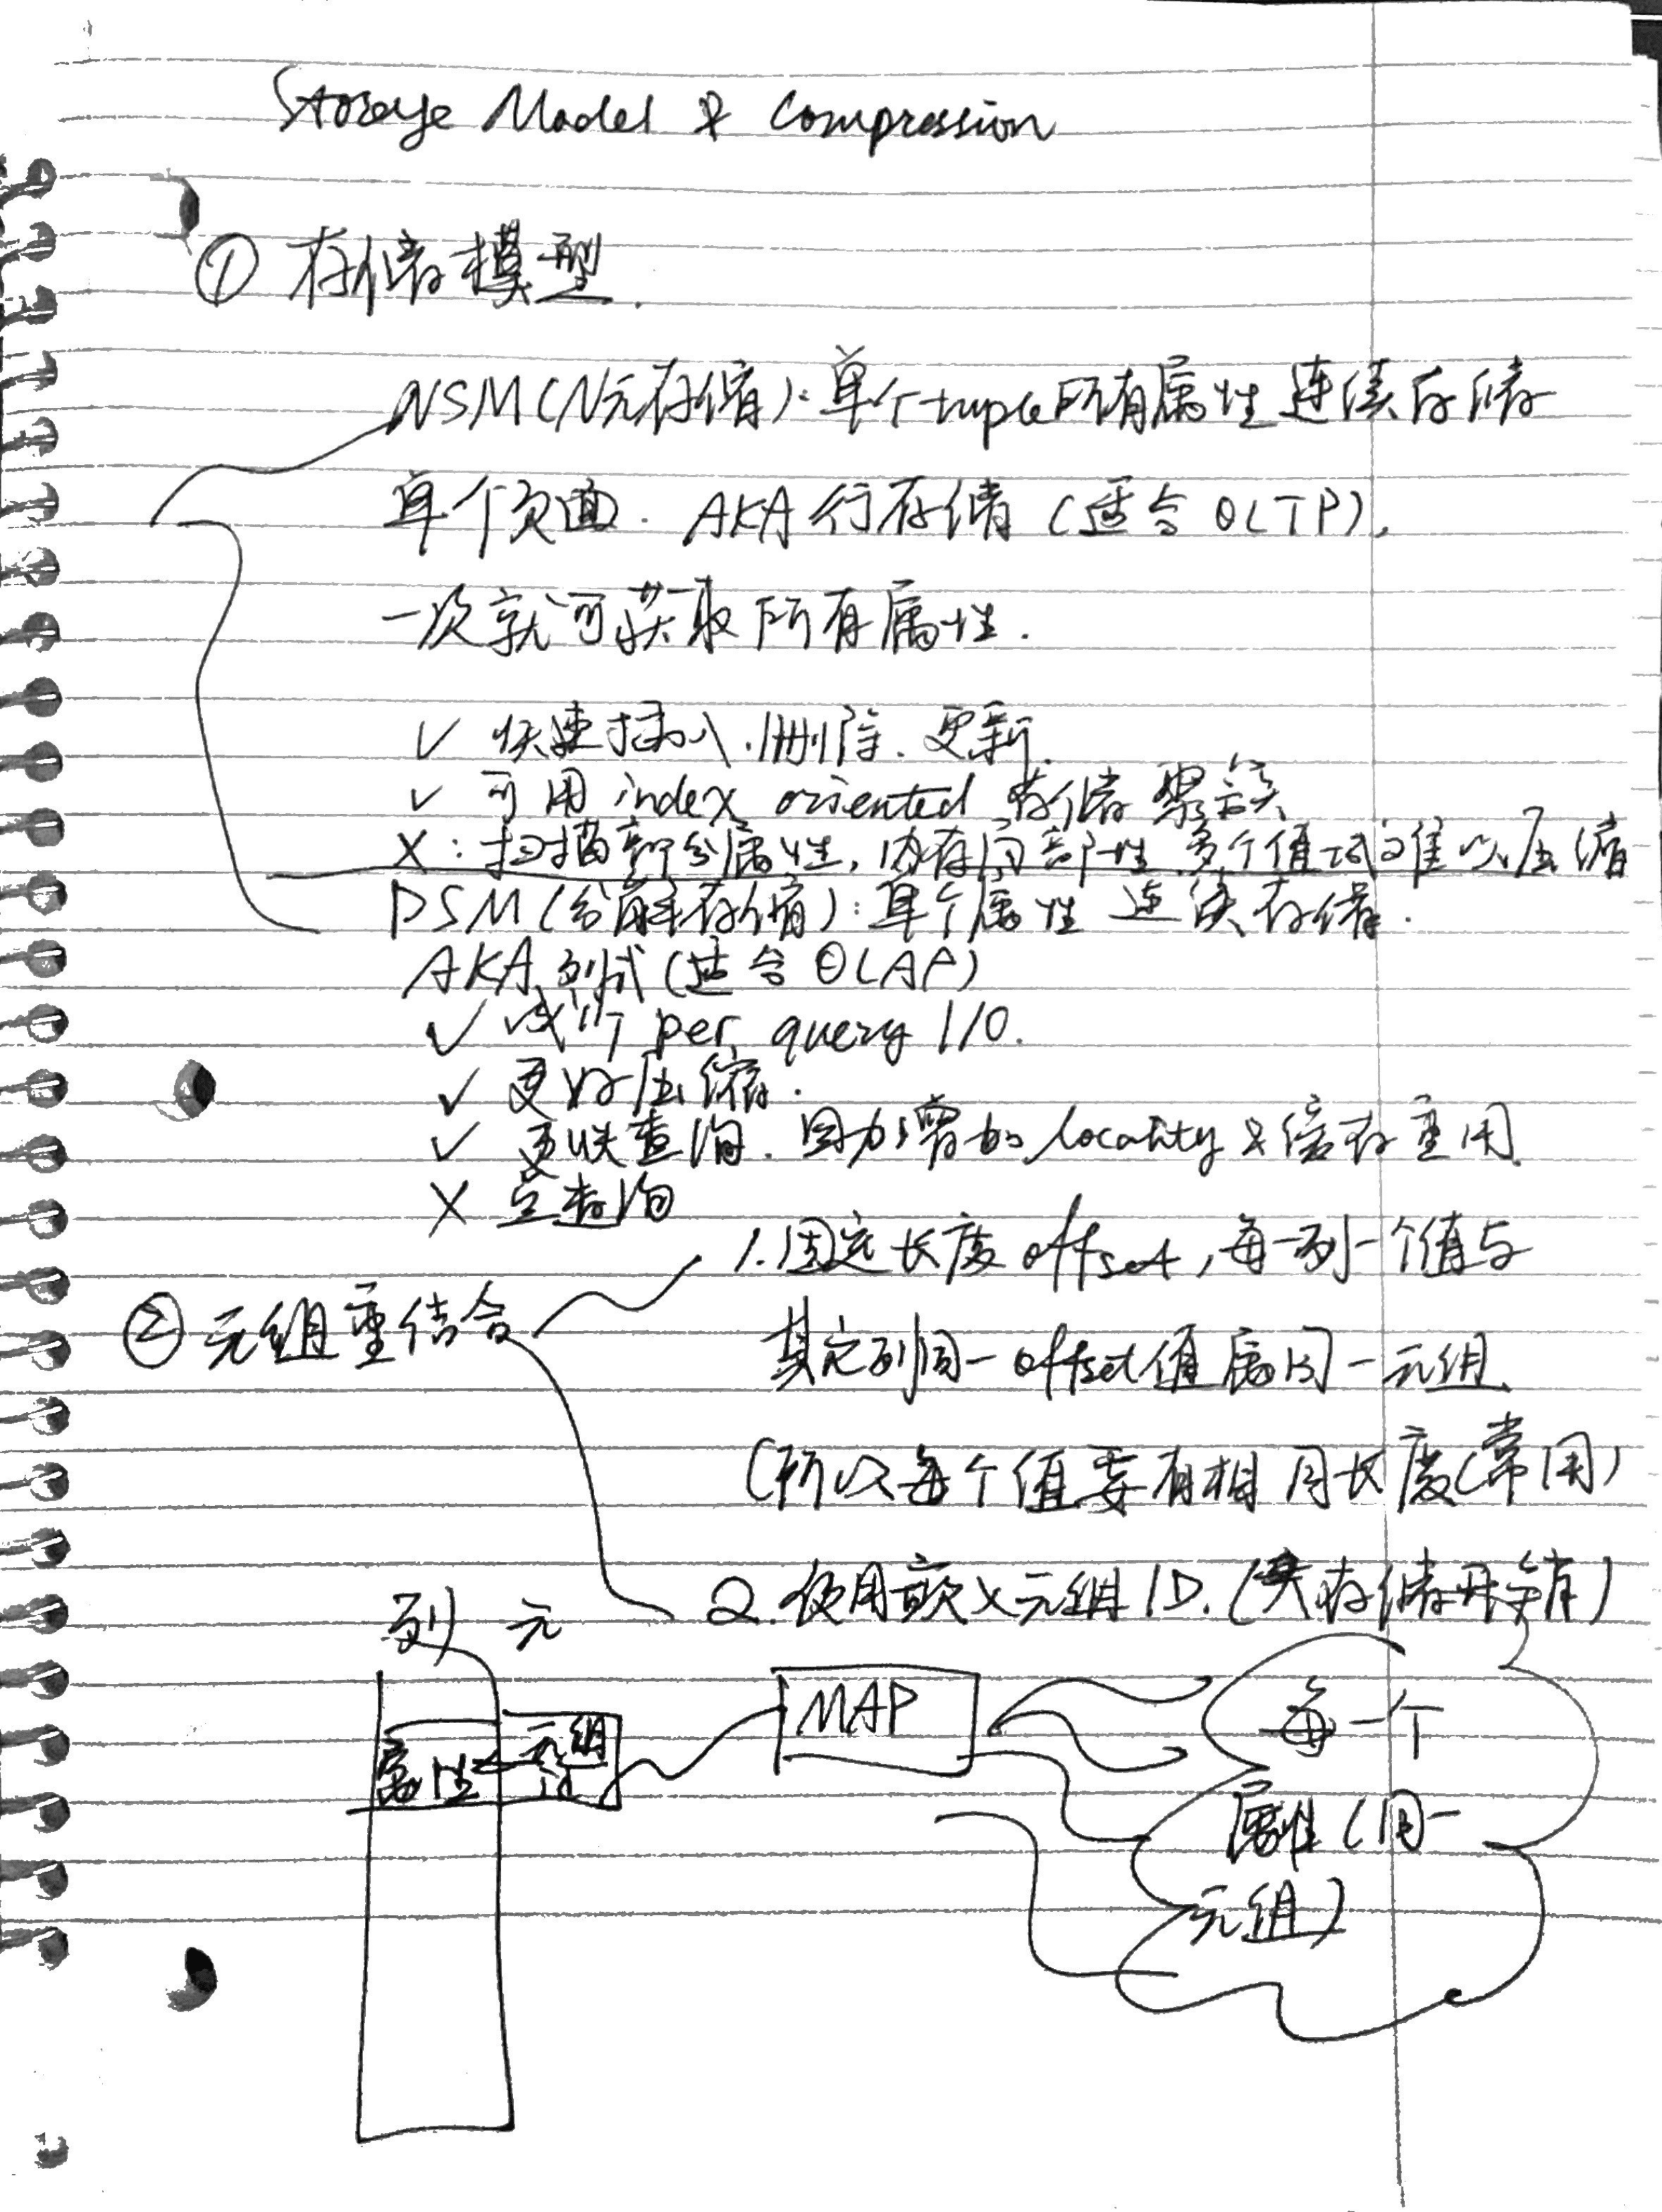 Storage Model & Compression
① 存储模型.
NSM(N元存储): 单个tuple所有属性连续存储
单个页面. AKA 行存储 (适合 OLTP).
一次就可获取所有属性.
✓ 快速插入.删除.更新.
✓ 可用 index oriented 存储聚簇
X: 扫描部分属性, 内存局部性, 多个值域难以压缩
DSM(分解存储): 单个属性 连续存储.
AKA 列式 (适合 OLAP)
✓ 减少 per query I/O.
✓ 更好压缩.
✓ 更快查询. 因为增加 locality & 缓存重用
X 点查询
② 元组重结合
1. 固定长度 offset, 每一列一个值与
其它列同一 offset 值属同一元组.
(所以每个值要有相同长度(常用)
2. 使用嵌入元组 ID. (大存储开销)
列 元
属性 元组 id
MAP
每一个
属性(同一
元组)